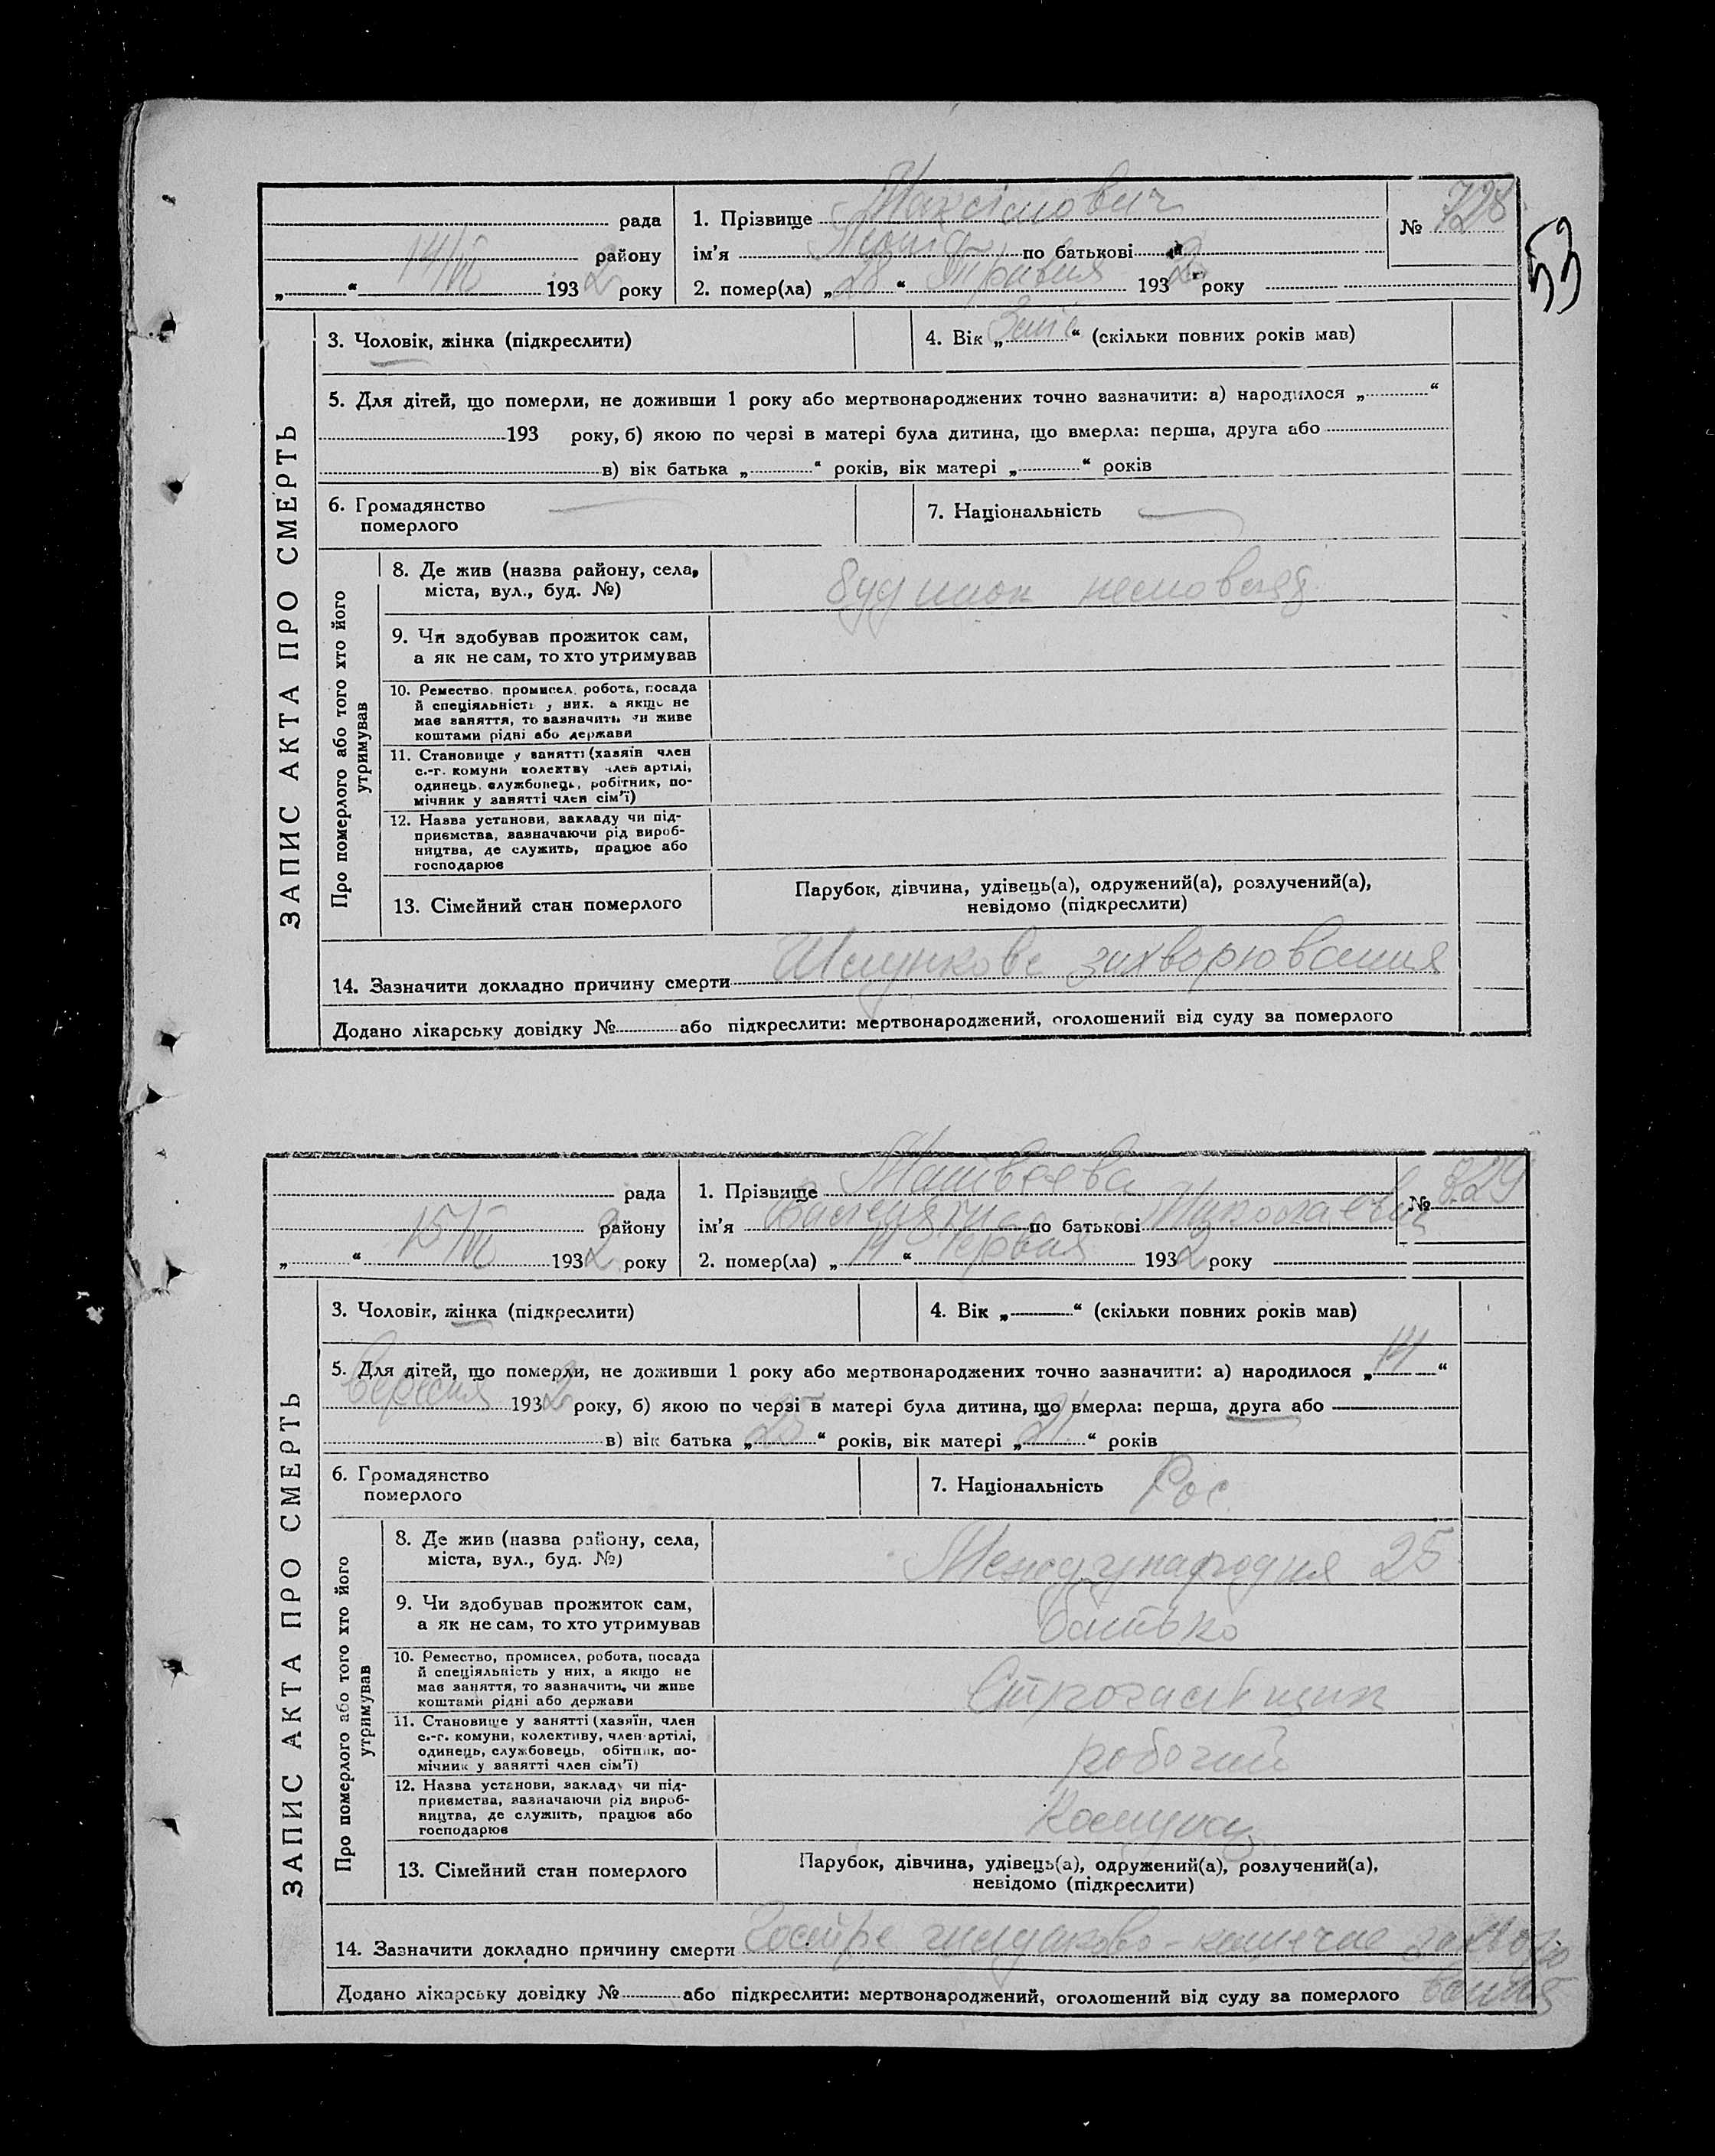 53
рада
району
14/VI 1932 року
1. Прізвище Максімович
ім'я по батькові
2. помер(ла) „28“ Травня 1932 року
№ 728
ЗАПИС АКТА ПРО СМЕРТЬ
3. Чоловік, жінка (підкреслити)
4. Вік „ “ (скільки повних років мав)
5. Для дітей, що померли, не доживши 1 року або мертвонароджених точно зазначити: а) народилося „ “
193 року, б) якою по черзі в матері була дитина, що вмерла: перша, друга або
в) вік батька „ “ років, вік матері „ “ років
6. Громадянство
померлого
7. Національність
Про померлого або того хто його
утримував
8. Де жив (назва району, села,
міста, вул., буд. №)
будинок немовлят
9. Чи здобував прожиток сам,
а як не сам, то хто утримував
10. Ремество, промисел, робота, посада
й спеціяльність у них, а якщо не
має заняття, то зазначить чи живе
коштами рідні або держави
11. Становище у занятті (хазяїн член
с.-г. комуни колективу член артілі,
одинець, службовець, робітник, по-
мічник у занятті член сім'ї)
12. Назва установи, закладу чи під-
приємства, зазначаючи рід вироб-
ництва, де служить, працює або
господарює
13. Сімейний стан померлого
Парубок, дівчина, удівець(а), одружений(а), розлучений(а),
невідомо (підкреслити)
14. Зазначити докладно причину смерти Шлункове захворювання
Додано лікарську довідку № або підкреслити: мертвонароджений, оголошений від суду за померлого
рада
району
15/VI 1932 року
1. Прізвище Матвеева
ім'я Валентина по батькові Миколаевна
2. помер(ла) „14“ Червня 1932 року
№ 829
ЗАПИС АКТА ПРО СМЕРТЬ
3. Чоловік, жінка (підкреслити)
4. Вік „ “ (скільки повних років мав)
5. Для дітей, що померли, не доживши 1 року або мертвонароджених точно зазначити: а) народилося „14“
Вересня 1932 року, б) якою по черзі в матері була дитина, що вмерла: перша, друга або
в) вік батька „25“ років, вік матері „21“ років
6. Громадянство
померлого
7. Національність Рос.
Про померлого або того хто його
утримував
8. Де жив (назва району, села,
міста, вул., буд. №)
Международная 25
9. Чи здобував прожиток сам,
а як не сам, то хто утримував
батько
10. Ремество, промисел, робота, посада
й спеціяльність у них, а якщо не
має заняття, то зазначити, чи живе
коштами рідні або держави
11. Становище у занятті (хазяїн, член
с.-г. комуни, колективу, член артілі,
одинець, службовець, обітник, по-
мічник у занятті член сім'ї)
робочий
12. Назва установи, закладу чи під-
приємства, зазначаючи рід вироб-
ництва, де служить, працює або
господарює
13. Сімейний стан померлого
Парубок, дівчина, удівець(а), одружений(а), розлучений(а),
невідомо (підкреслити)
14. Зазначити докладно причину смерти Гостре шлунково-кишечне захворю
вання
Додано лікарську довідку № або підкреслити: мертвонароджений, оголошений від суду за померлого